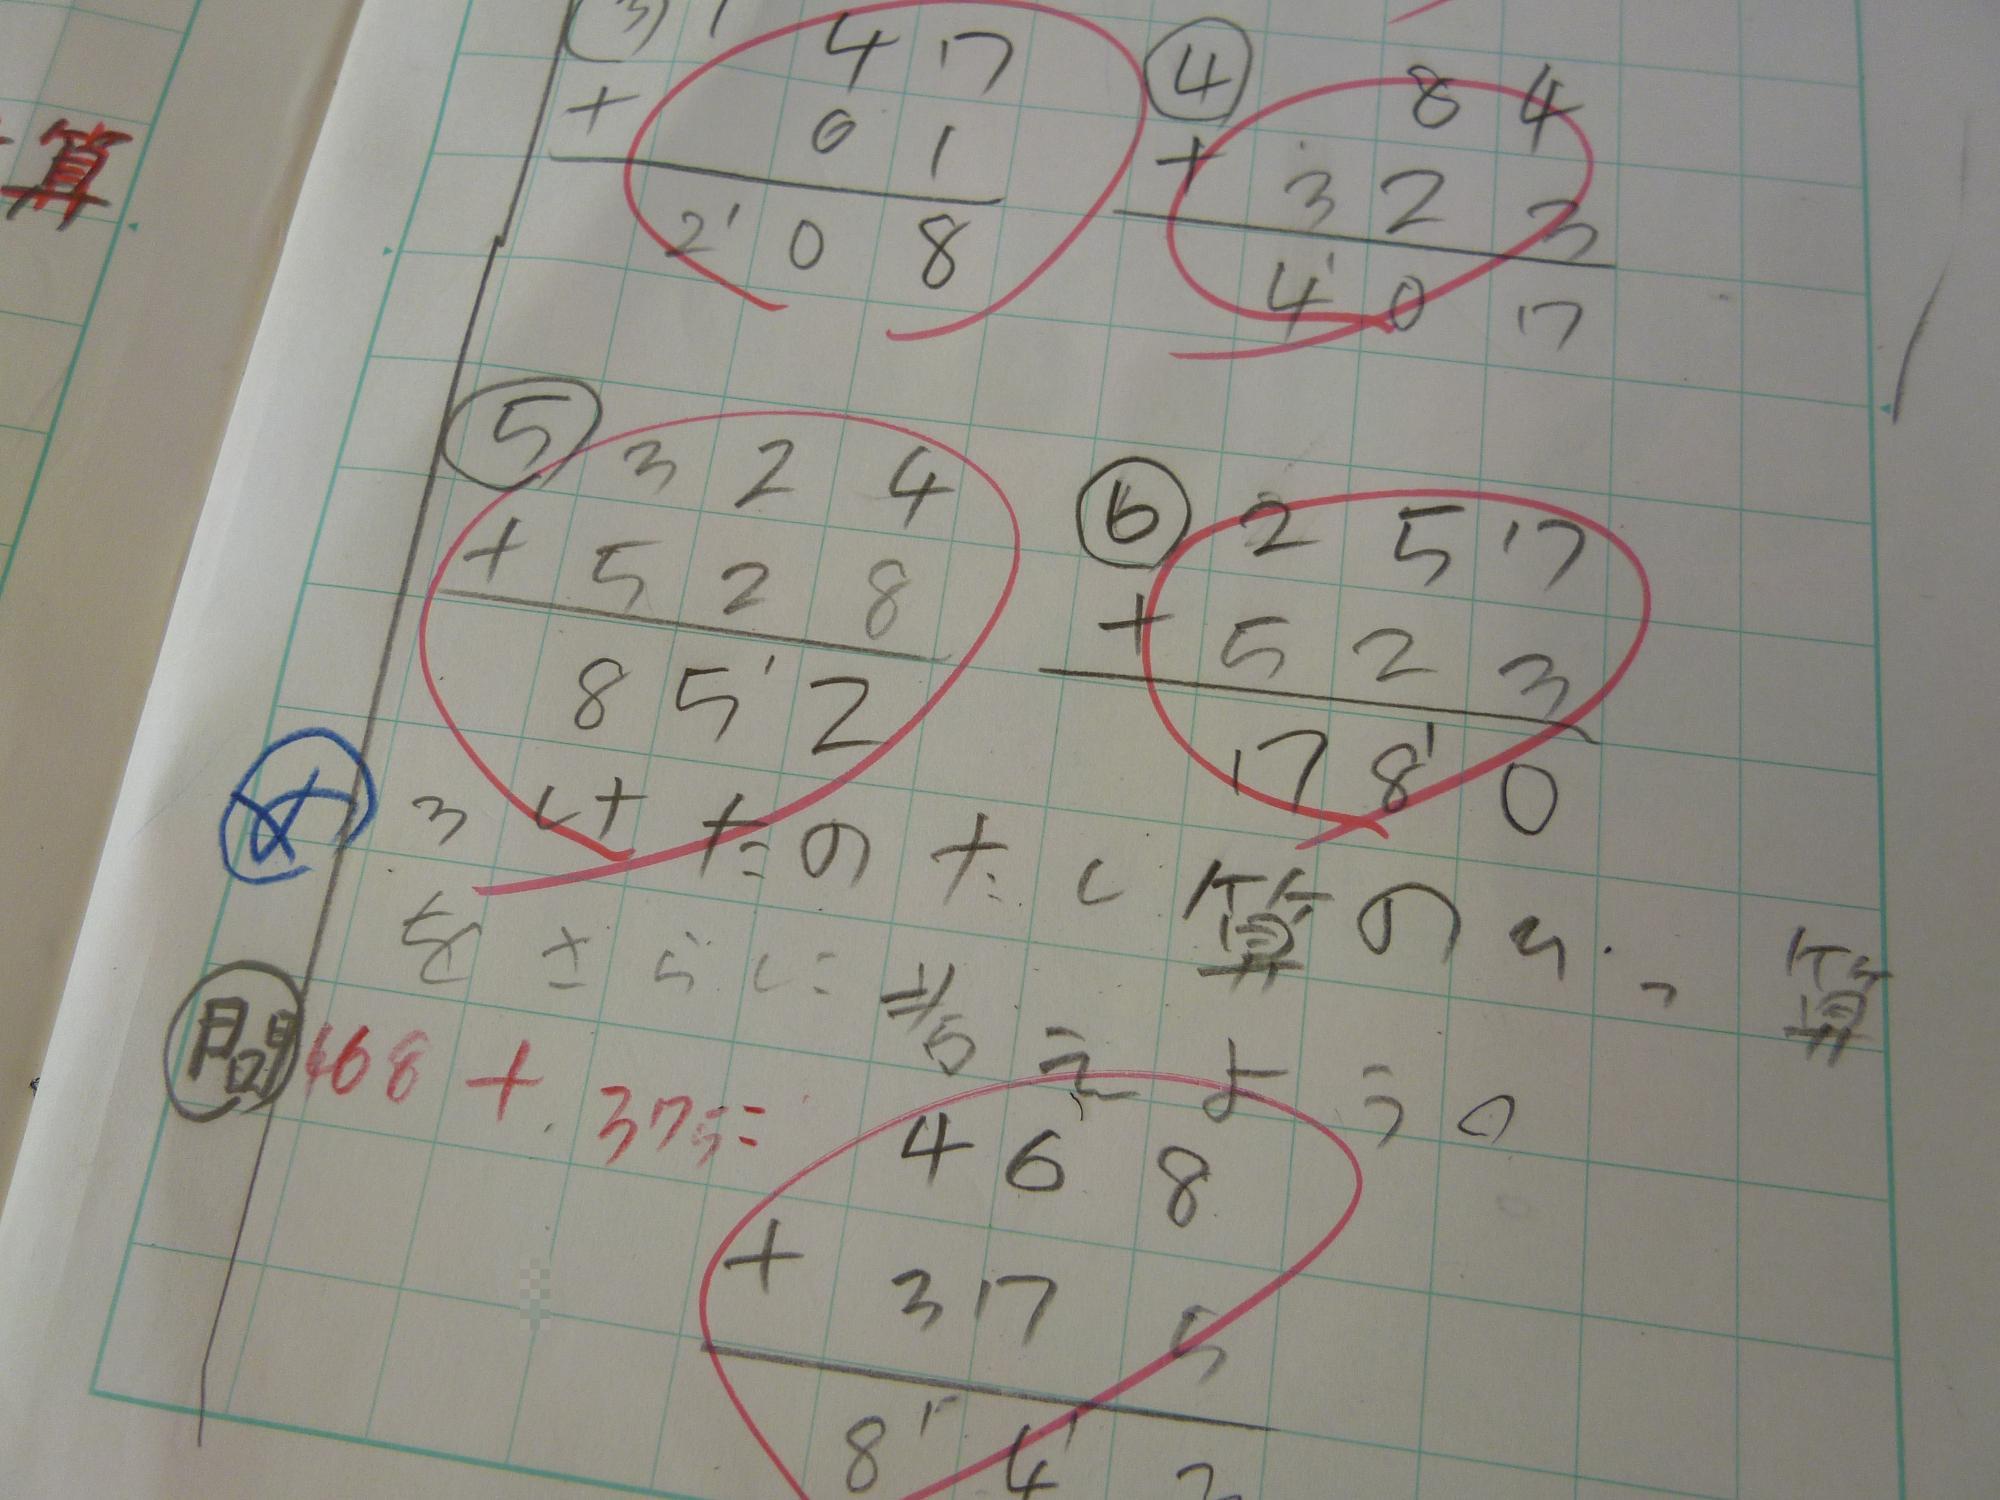 算
③ 1 4 7
+ 6 1
2 0 8
④ 8 4
+ 3 2 3
4 0 7
⑤ 3 2 4
+ 5 2 8
8 5 2
⑥ 2 5 7
+ 5 2 3
7 8 0
め 3 けたのたし算のひっ算
をさらに考えよう。
問 468 + 375=
4 6 8
+ 3 7 5
8 4 3